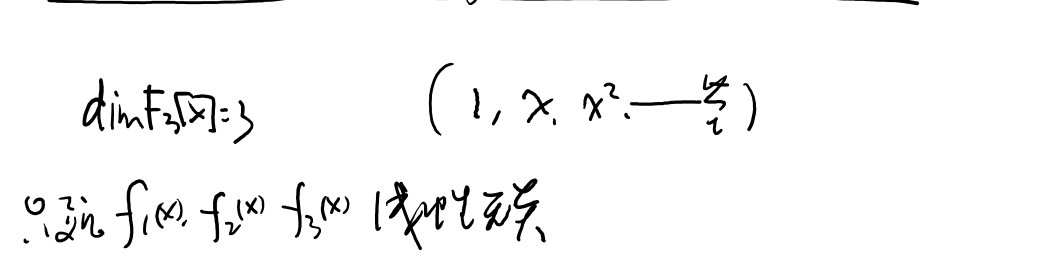 dimF₃[x]=3 (1, x, x², 一组基)
∴证 f₁(x), f₂(x) f₃(x) 线性无关